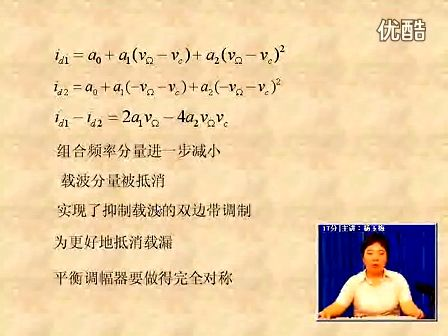 优酷
i_{d1} = a_0 + a_1(v_Ω − v_c) + a_2(v_Ω − v_c)^2
i_{d2} = a_0 + a_1(−v_Ω − v_c) + a_2(−v_Ω − v_c)^2
i_{d1} − i_{d2} = 2a_1v_Ω − 4a_2v_Ωv_c
组合频率分量进一步减小
载波分量被抵消
实现了抑制载波的双边带调制
为更好地抵消载漏
平衡调幅器要做得完全对称